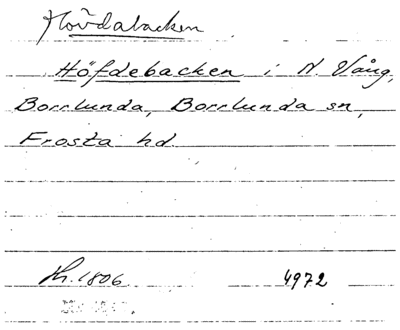 Hövdabacken
Höfdebacken i N. Vång,
Borrlunda, Borrlunda sn,
Frosta hd.
h. 1806 4972